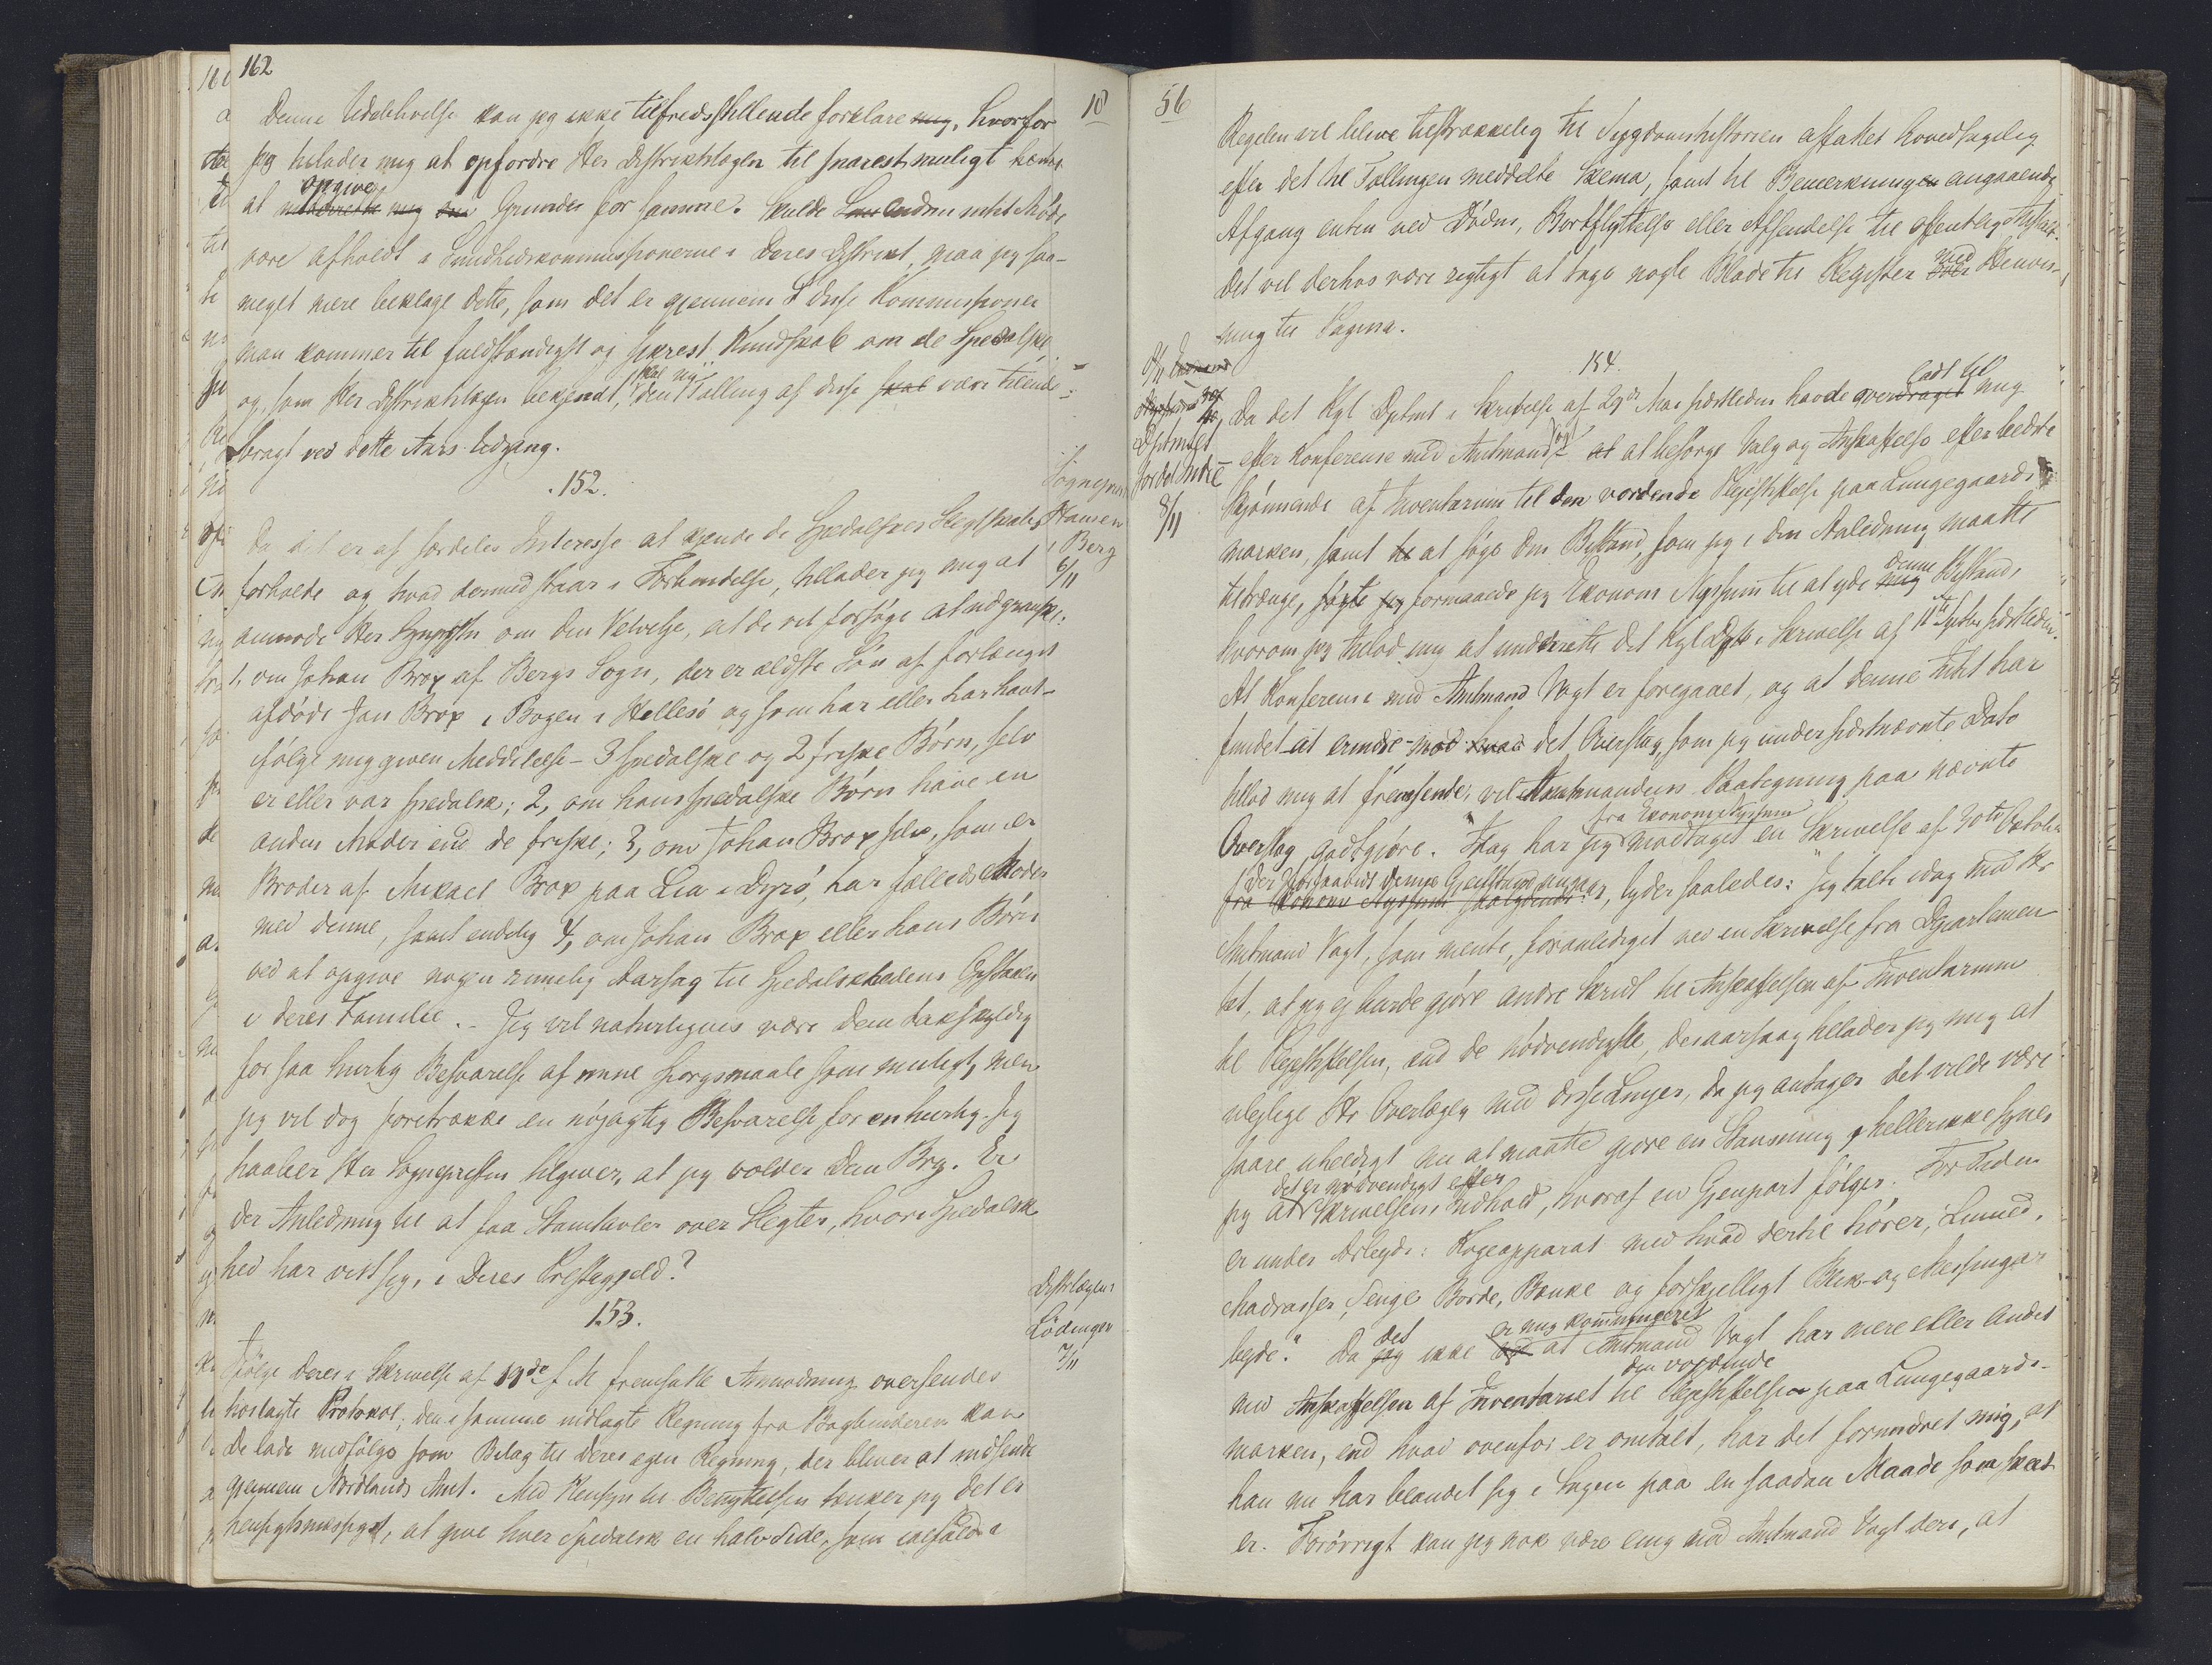 162
18
Denne Udeblivelse kan jeg ikke tilfredsstillende forklare mig, hvorfor
jeg tillader mig at opfordre Her Distriktslægen til snarest muligt
opgive
at underrette mig om Grunden for samme. Skulde intet Møde
være afholdt i Sundhedskommissionerne i Deres Distrikt, maa jeg saa-
meget mere beklage dette, som det er gjennem disse Kommissioner
man kommer til fuldstændigst og sikrest Kundskab om de Spedalske
skal ny
og, som Her Distriktslægen bekjendt, den Tælling af disse skal være tilende-
bragt ved dette Aars Udgang.
152.
Sognepræst
Hansen
i Berg
6/11
Da det er af særdeles Interesse at kjende de Spedalskes Slegtskabs
forholde og hvad dermed staar i Forbindelse, tillader jeg mig at
anmode Her Sognepresten om den Velvilje, at De vil forsøge at udgranske:
1, om Johan Brox af Bergs Sogn, der er ældste Søn af forlængst
afdøde Jan Brox i Bogen i Hellesø og som har eller har havt -
ifølge mig given Meddelelse - 3 spedalske og 2 friske Børn, selv
er eller var spedalsk; 2, om hans spedalske Børn have en
anden Moder end de friske; 3, om Johan Brox selv, som er
Broder af Mikael Brox paa Lia i Dyrø, har fælleds Moder
med denne, samt endelig 4, om Johan Brox eller hans Børn
ved at opgive nogen rimelig Aarsag til Spedalskhedens Opstaaen
i deres Familie. - Jeg vil naturligvis være Dem takskyldig
for saa hurtig Besvarelse af mine Spørgsmaale som muligt, men
jeg vil dog foretrække en nøjagtig Besvarelse for en hurtig. Jeg
haaber Her Sognepresten tilgiver, at jeg volder Dem Bry. Er
der Anledning til at faa Stamtavler over Slegter, hvori Spedalsk-
hed har vist sig, i Deres Prestegjeld?
153.
Distrlægen i
Lødingen
7/11
Ifølge Deres i Skrivelse af 19de f. M. fremsatte Anmodning oversendes
hoslagte Protokol; den i samme indlagte Regning fra Bogbinderen kan
De lade medfølge som Bilag til Deres egen Regning, der bliver at indsende
gjennem Nordlands Amt. Med Hensyn til Benyttelsen tænker jeg det er
hensigtsmæssigst, at give hver Spedalsk en halv Side, som ialfald i
56
Regelen vil blive tilstrækkelig til Sygdomshistorien affattet hovedsagelig
efter det til Tællingen meddelte Skema, samt til Bemerkningen angaaende
Afgang enten ved Døden, Bortflyttelse eller Afsendelse til offentlig Anstalt.
med
Det vil derhos være rigtigt at tage nogle Blade til Register over Henvis-
ning til Pagina.
154.
Dptmtet
for det Indre
8/11
ladt til
Da det Kgl Dptmt i Skrivelse af 29de Mai sidstleden havde overdraget mig
efter Konference med Amtmand Vogt at at besørge Valg og Anskaffelse efter bedste
Skjønnende af Inventarium til den vordende Plejestiftelse paa Lungegaards
marken, samt til at søge den Bistand, som jeg i den Anledning maatte
denne
tiltrænge, søgte jeg formaaede jeg Økonom Nyssum til at yde mig Bistand,
hvorom jeg tillod mig at underrette det Kgl Dpt i Skrivelse af 11te Septbr sidstleden.
At Konference med Amtmand Vogt er foregaaet, og at denne intet har
fundet at erindre mod hvad det Overslag, som jeg under sidstnævnte Dato
tillod mig at fremsende, vil Amtmandens Paategning paa nævnte
fra Økonom Nyssum
Overslag godtgjøre. Idag har jeg modtaget en Skrivelse af 30te Oktober
der forsaavidt denne Gjenstand angaar, lyder saaledes: "Jeg talte idag med Hr
fra Økonom Nyssum saalydende:
Amtmand Vogt, som mente, foranlediget ved en Skrivelse fra Departemen-
tet, at jeg ej burde gjøre andre Skridt til Anskaffelsen af Inventarium
til Plejestiftelsen, end de nødvendigste, desaarsag tillader jeg mig at
ulejlige Hr Overlægen med disse Linjer, da jeg antager det vilde være
saare uheldigt nu at maatte gjøre en Standsning og heller ikke synes
det er nødvendigt efter
jeg at Skrivelsens Indhold, hvoraf en Gjenpart følger. For Tiden
er under Arbejde: Kogeapparat med hvad dertil hører, Linned,
Madrasser, Senge Borde, Bænke og forskjelligt Blik- og Messingar-
det er mig kommuniceret
bejde." Da jeg ikke at Amtmand Vogt har mere eller andet
den vordende
med Anskaffelsen af Inventariet til Plejestiftelsen paa Lungegaards-
marken, end hvad ovenfor er omtalt, har det forundret mig, at
han nu har blandet sig i Sagen paa en saadan Maade som skeet
er. Forøvrigt kan jeg nok være enig med Amtmand Vogt deri, at